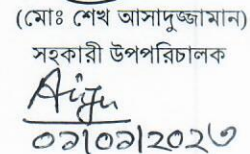 (মোঃ শেখ আসাদুজ্জামান)
সহকারী উপপরিচালক
০১/০১/২০২৩